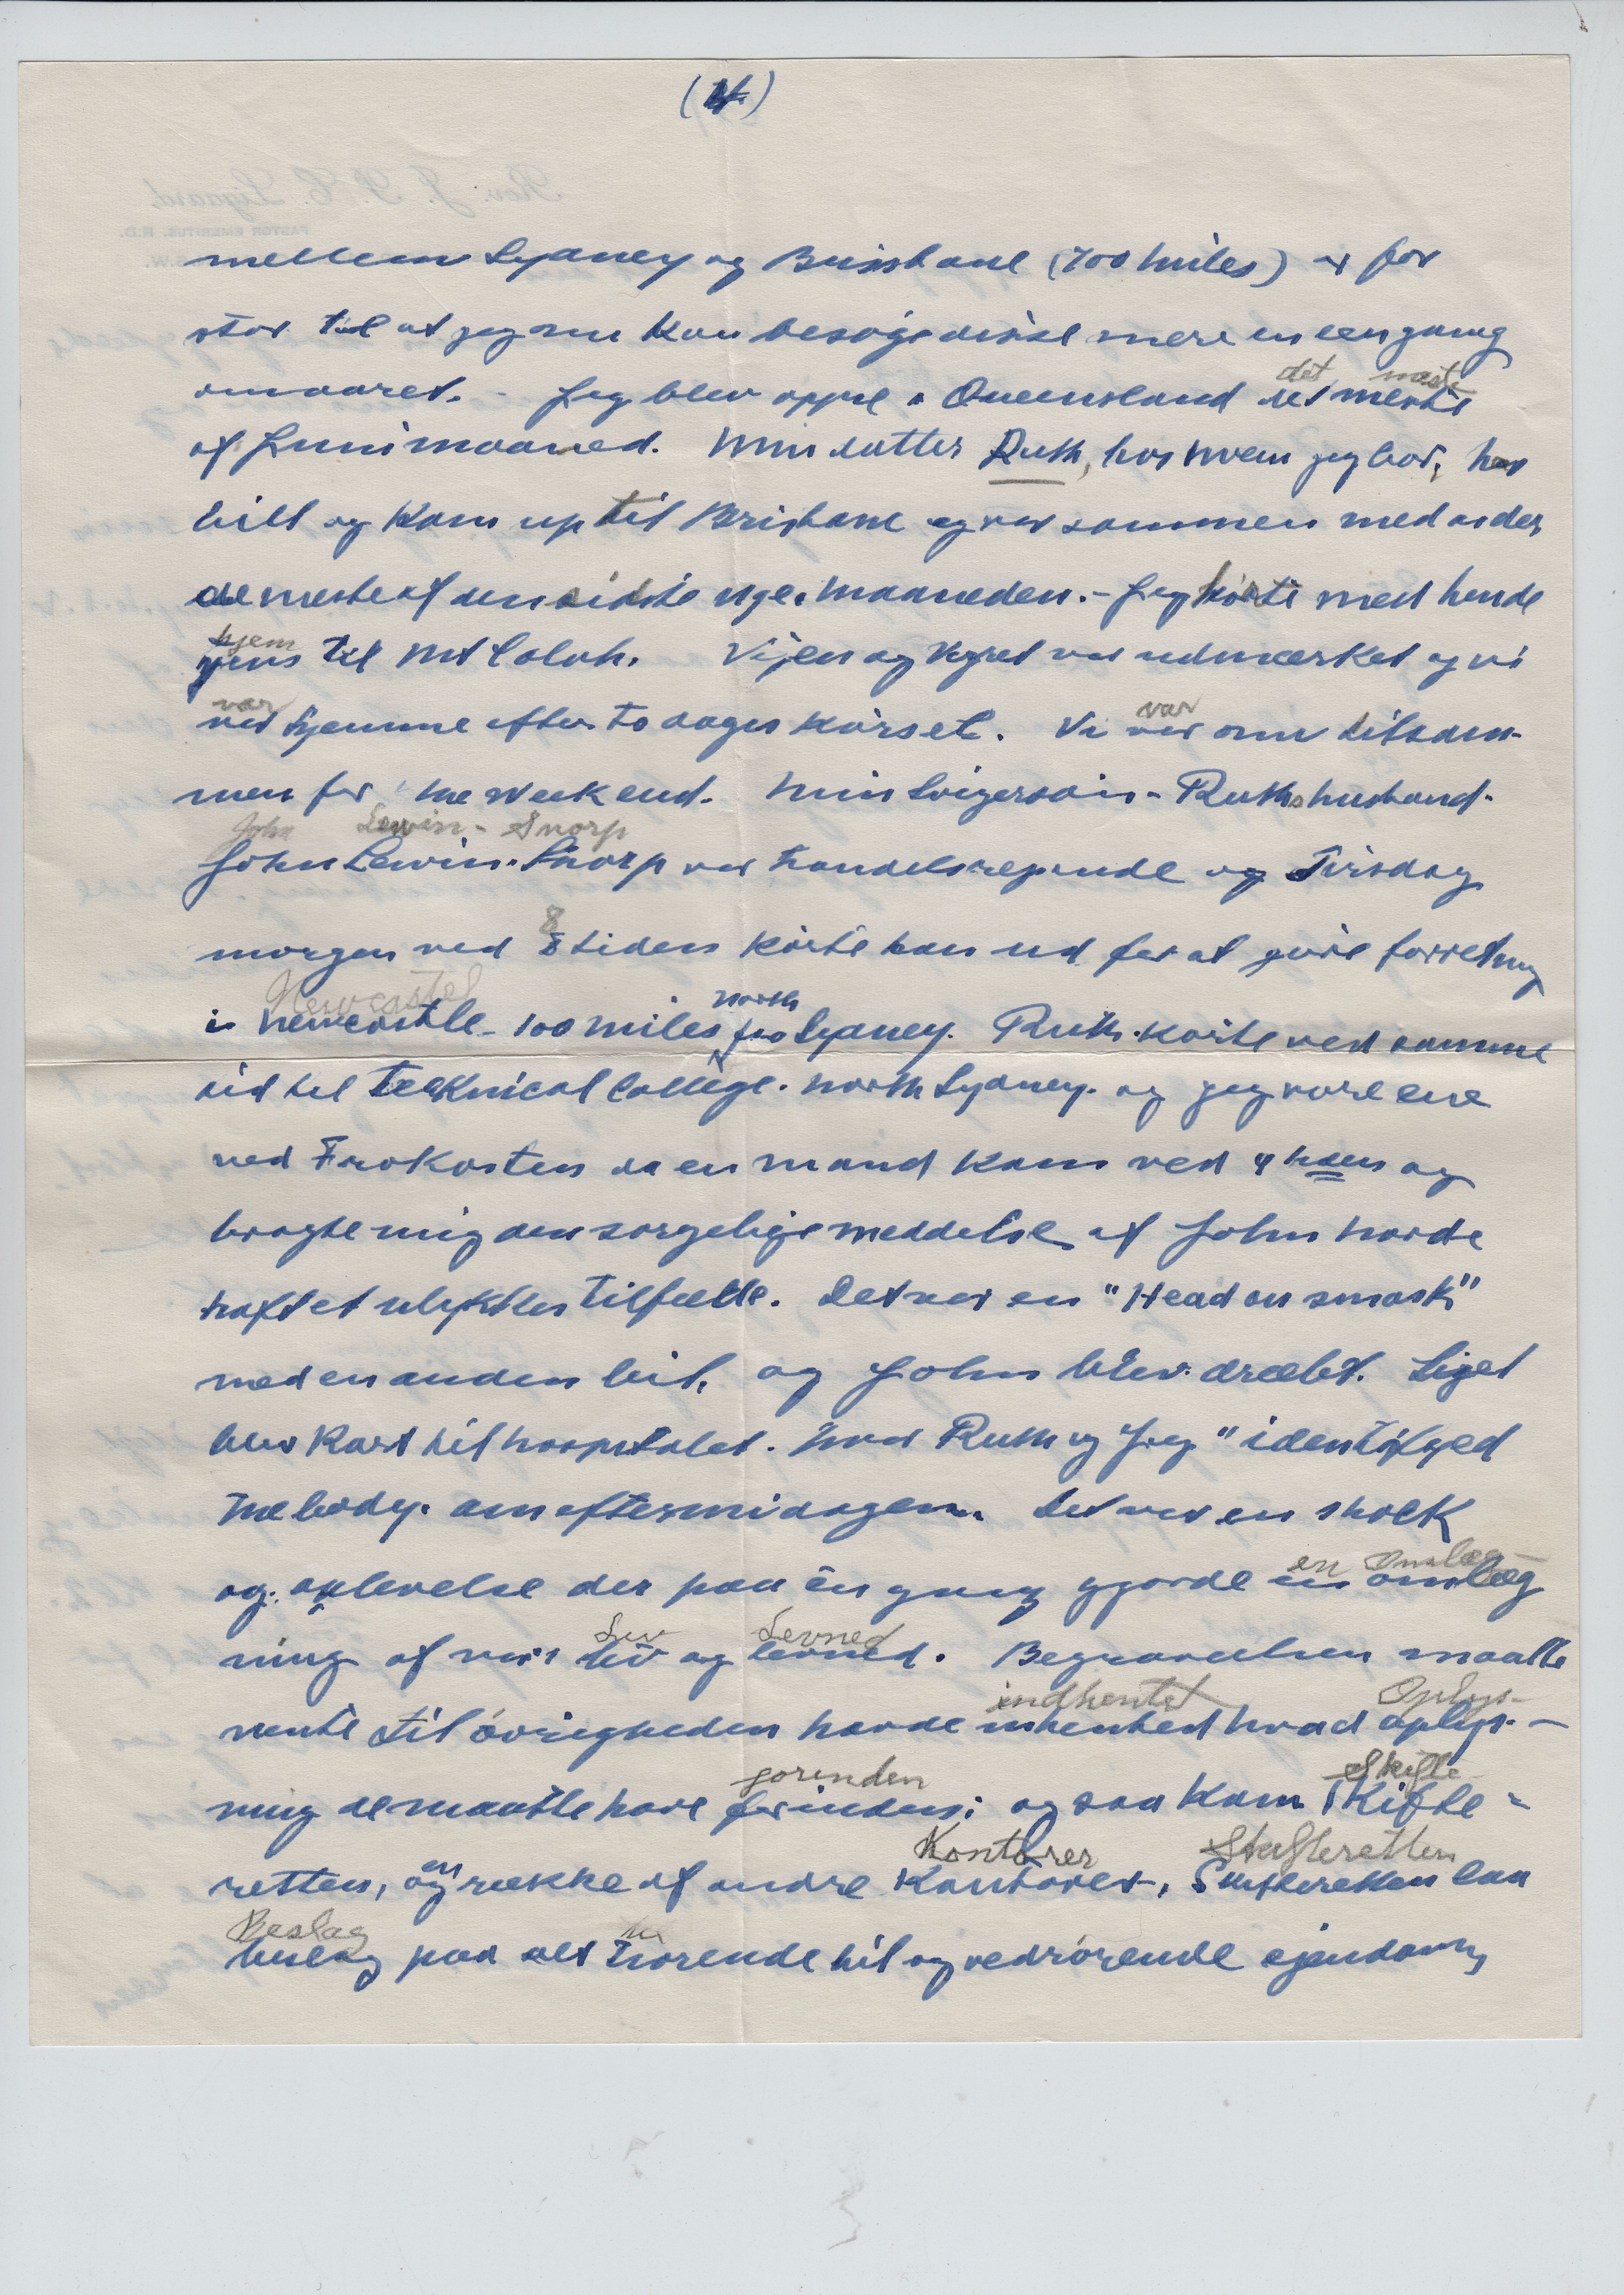 (4)
mellem Sydney og Brisbane (700 miles) er for
stor til at jeg nu kan besøge disse mere en een gang
om aaret. - Jeg blev oppe i Queensland det meste
det meste
af Juni maaned. Min datter Ruth, hos hvem jeg bor, har
bill og kom up til Brisbane og var sammen med os der
de meste af den sidste uge i maaneden. - Jeg körte med hende
hjem
hjem til Mt Colah. Vejen og Vejret var udmærket og vi
var var
var hjemme efter to dages körsel. Vi var om tilsam-
men for the weekend. Min Svigersön - Ruths husband.
John Lewin - Snorp
John Lewin - Snorp var handelsrejsende og Tirsdag
8
morgen ved 8 tiden körte han ud for at göre forretning
Newcastel north
i Newcastle - 100 miles fra Sydney. Ruth körte ved samme
tid til Teknical College. north Sydney. og jeg var ene
ved Frokosten da en mand kom ved og
bragte mig den sorgelige meddelse at John havde
haft et ulykkes tilfælde. Det var en "Head on smash"
med en anden bil, og John blev dræbt. Liget
blev kört til hospitalet. hvor Ruth og Jeg "identifyed
the body. om eftermidagen. Det var en shock
en Omlæg-
og oplevelse der paa en gang gjorde en omlæg
Liv Levned
ning af vort liv og levned. Begravelsen maatte
indhentet Oplys-
vente til övrigheden havde inhentet hvad oplys-
forinden Skifte
ning de maatte have forinden; og saa kom Skifte-
Kontorer Skifteretten
retten, og en række af andre Kontorer, Skifteretten laa
Beslag
beslag paa alt hörende til og vedrörende ejendom,